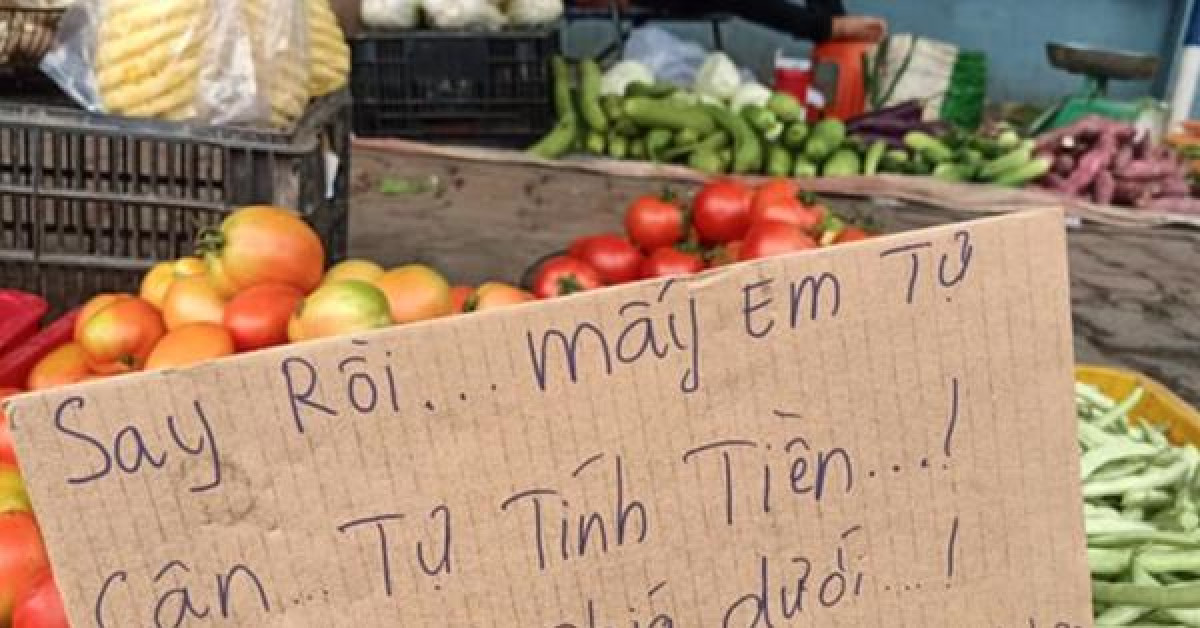 Say Rồi... mấy Em Tự
Cân... Tự Tính Tiền....!
phía dưới...!